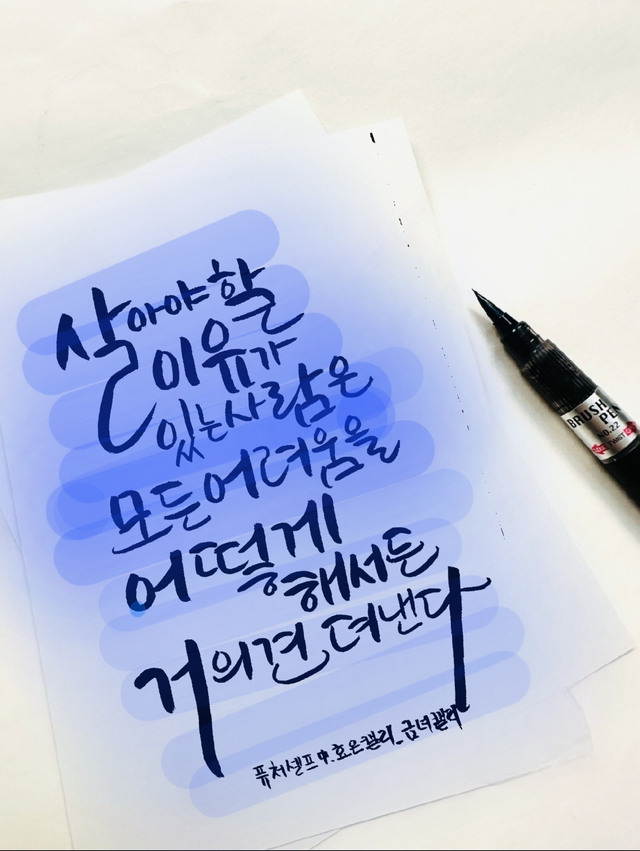 살아야할
이유가
있는사람은
모든어려움을
어떻게
해서든
거의견뎌낸다
퓨처셀프中.효은캘리_금녀캘리
BRUSH
PEN
NO.22